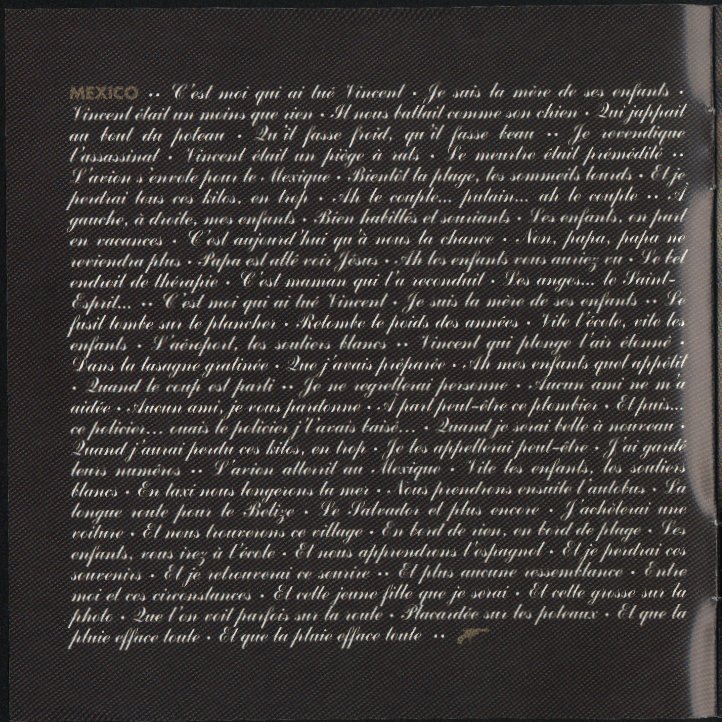 MEXICO •• C'est moi qui ai tué Vincent • Je suis la mère de ses enfants •
Vincent était un moins que rien • Il nous battait comme son chien • Qui jappait
au bout du poteau • Qu'il fasse froid, qu'il fasse beau •• Je revendique
l'assassinat • Vincent était un piège à rats • Le meurtre était prémédité ••
L'avion s'envole pour le Mexique • Bientôt la plage, les sommeils lourds • Et je
perdrai tous ces kilos, en trop • Ah le couple... putain... ah le couple •• A
gauche, à droite, mes enfants • Bien habillés et souriants • Les enfants, on part
en vacances • C'est aujourd'hui qu'à nous la chance • Non, papa, papa ne
reviendra plus • Papa est allé voir Jésus • Ah les enfants vous auriez vu • Le bel
endroit de thérapie • C'est maman qui l'a reconduit • Les anges... le Saint-
Esprit... •• C'est moi qui ai tué Vincent • Je suis la mère de ses enfants •• Le
fusil tombe sur le plancher • Retombe le poids des années • Vite l'école, vite les
enfants • L'aéroport, les souliers blancs •• Vincent qui plonge l'air étonné •
Dans la lasagne gratinée • Que j'avais préparée • Ah mes enfants quel appétit
• Quand le coup est parti •• Je ne regretterai personne • Aucun ami ne m'a
aidée • Aucun ami, je vous pardonne • A part peut-être ce plombier • Et puis...
ce policier... ouais le policier j'l'avais baisé... • Quand je serai belle à nouveau •
Quand j'aurai perdu ces kilos, en trop • Je les appellerai peut-être • J'ai gardé
leurs numéros •• L'avion atterrit au Mexique • Vite les enfants, les souliers
blancs • En taxi nous longerons la mer • Nous prendrons ensuite l'autobus • La
longue route pour le Belize • Le Salvador et plus encore • J'achèterai une
voiture • Et nous trouverons ce village • En bord de rien, en bord de plage • Les
enfants, vous irez à l'école • Et nous apprendrons l'espagnol • Et je perdrai ces
souvenirs • Et je retrouverai ce sourire •• Et plus aucune ressemblance • Entre
moi et ces circonstances • Et cette jeune fille que je serai • Et cette grosse sur la
photo • Que l'on voit parfois sur la route • Placardée sur les poteaux • Et que la
pluie efface toute • Et que la pluie efface toute ••